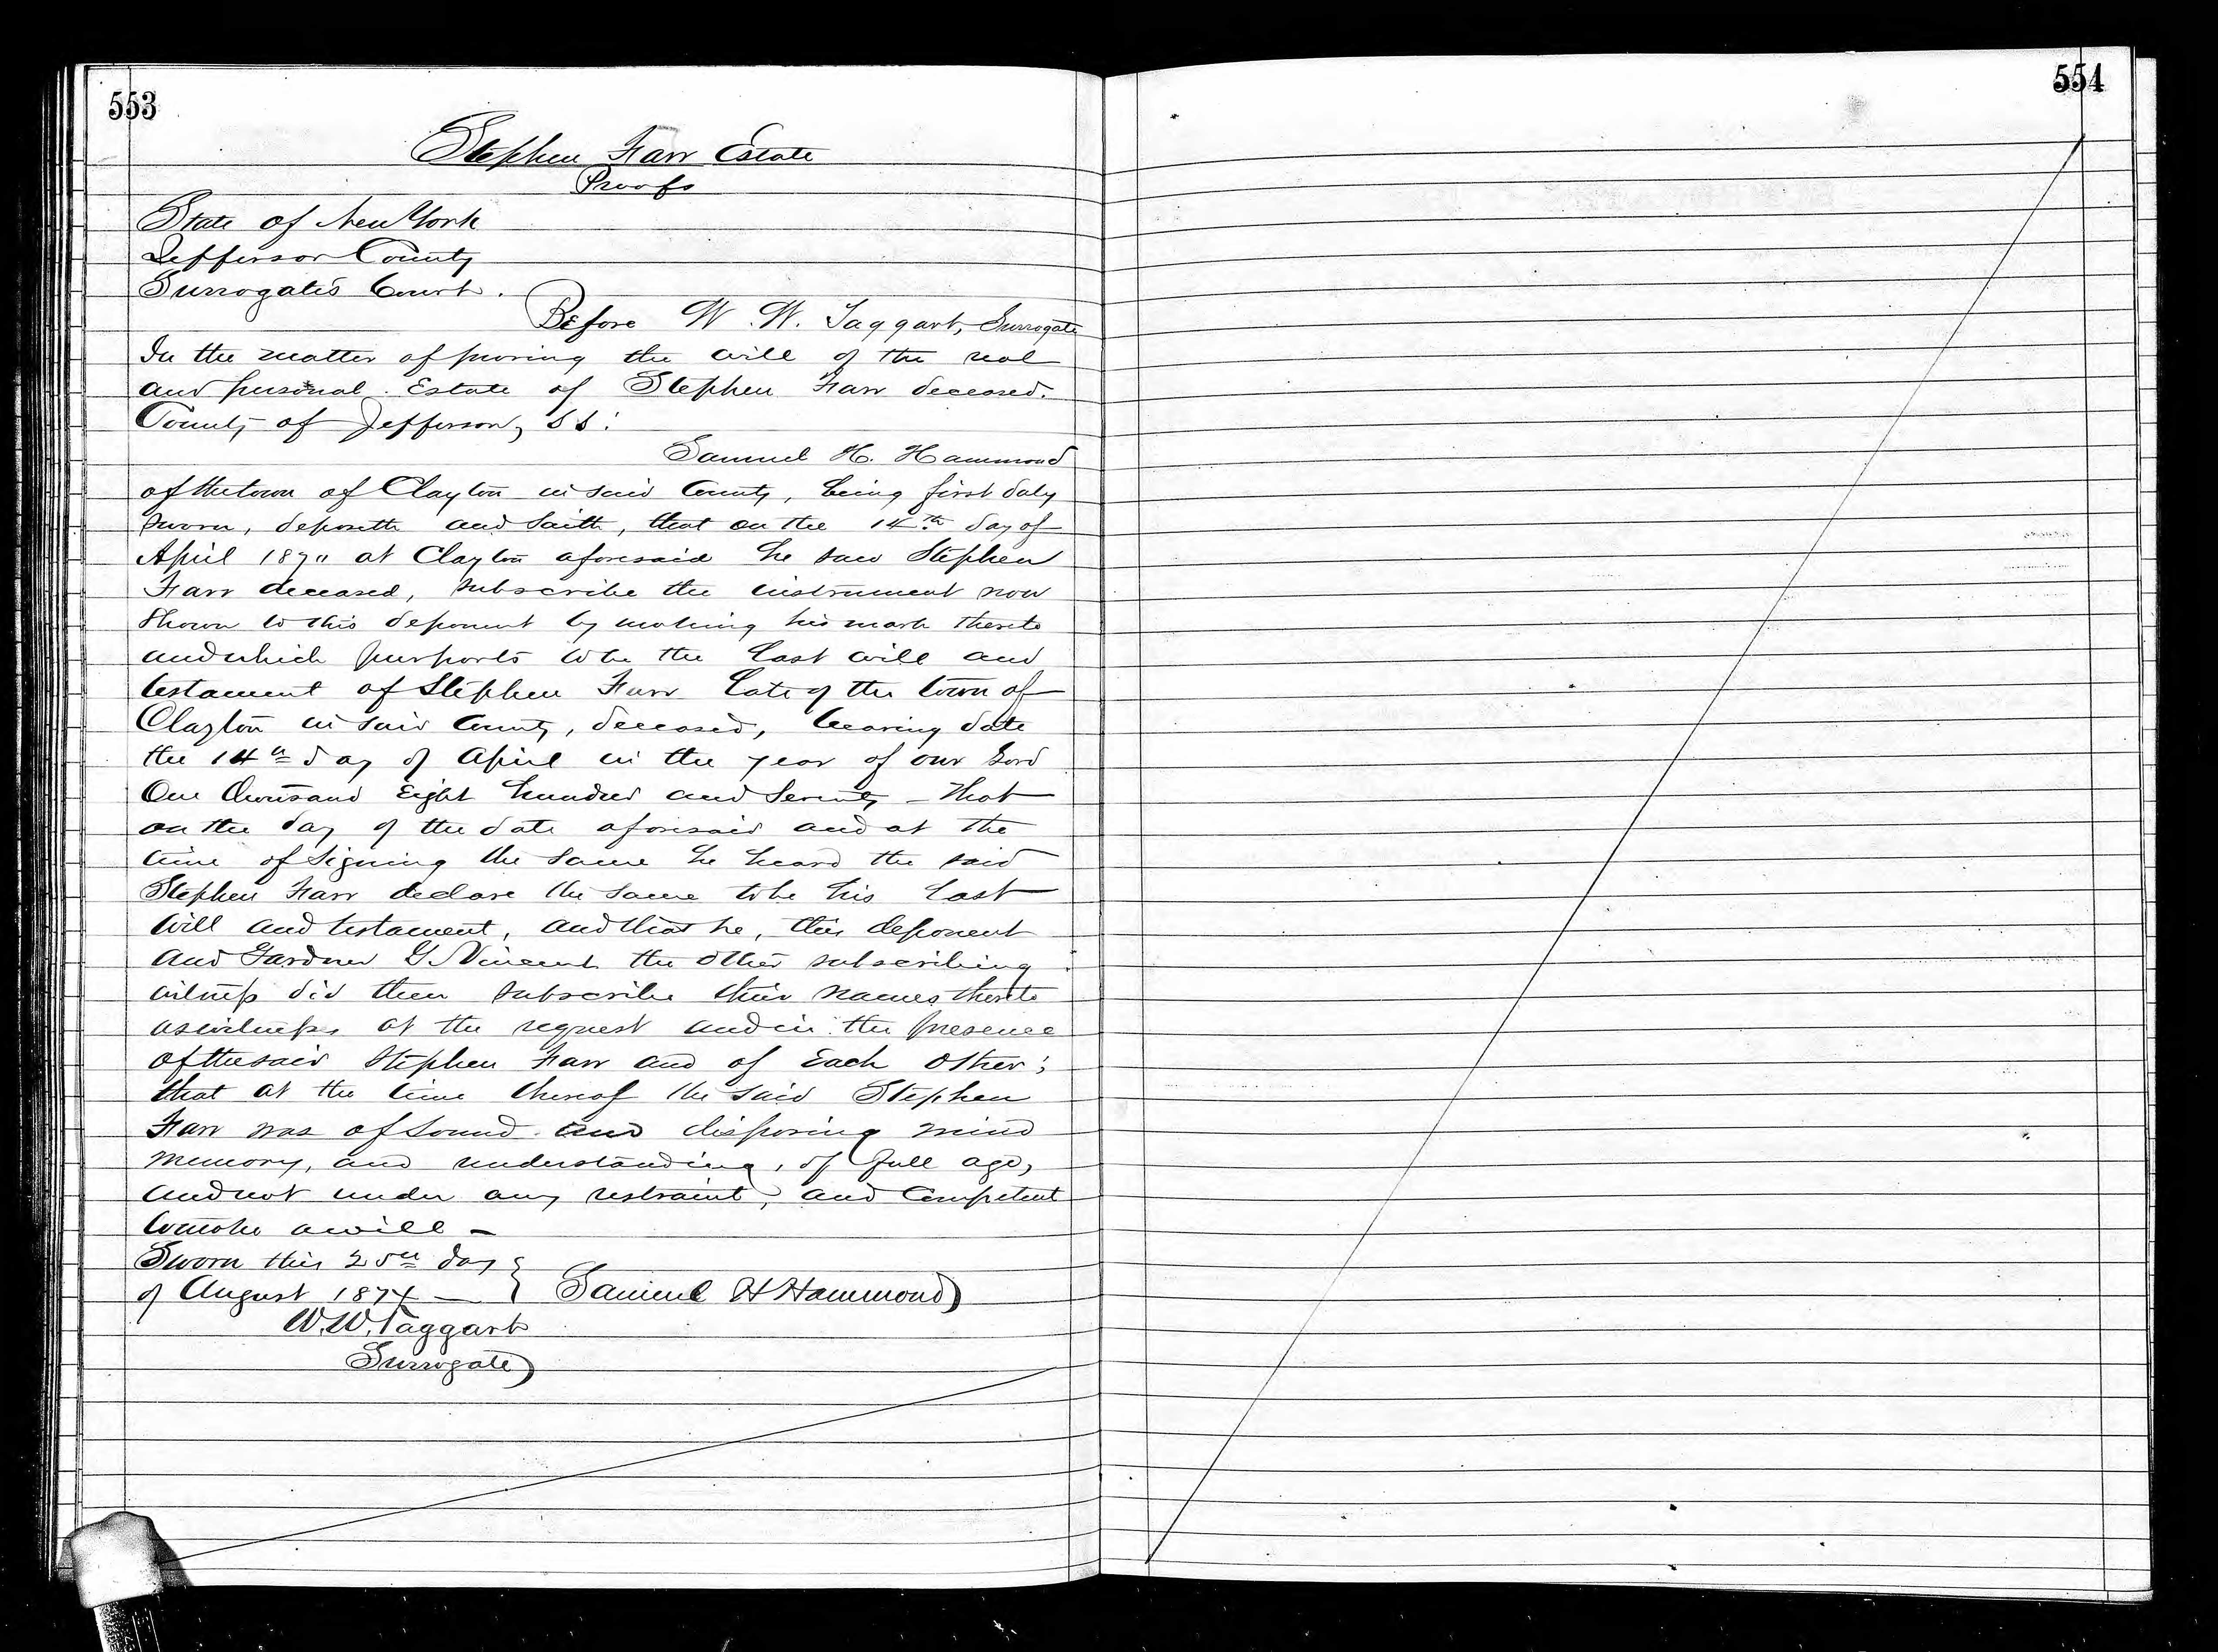 553
Stephen Farr Estate
Proofs
State of New York
Jefferson County
Surrogate's Court.
Before W. W. Taggart, Surrogate
In the matter of proving the will of the real
and personal Estate of Stephen Farr deceased.
County of Jefferson, SS:
Samuel H. Hammond
of the town of Clayton in said County, being first duly
sworn, deposeth and saith, that on the 14th day of
April 1870 at Clayton aforesaid he saw Stephen
Farr deceased, subscribe the instrument now
shown to this deponent by making his mark thereto
and which purports to be the last will and
testament of Stephen Farr late of the town of
Clayton in said County, deceased, bearing date
the 14th day of April in the year of our Lord
One thousand Eight hundred and Seventy - that
on the day of the date aforesaid and at the
time of signing the same he heard the said
Stephen Farr declare the same to be his last
will and testament, and that he, this deponent
and Gardner G. Vincent the other subscribing
witness did then subscribe their names thereto
as witnesses at the request and in the presence
of the said Stephen Farr and of Each other;
that at the time thereof the said Stephen
Farr was of sound and disposing mind
memory, and understanding, of full age,
and not under any restraint, and Competent
to make a will -
Sworn this 25th day
of August 1874 — } Samuel H Hammond
W. W. Taggart
Surrogate
554